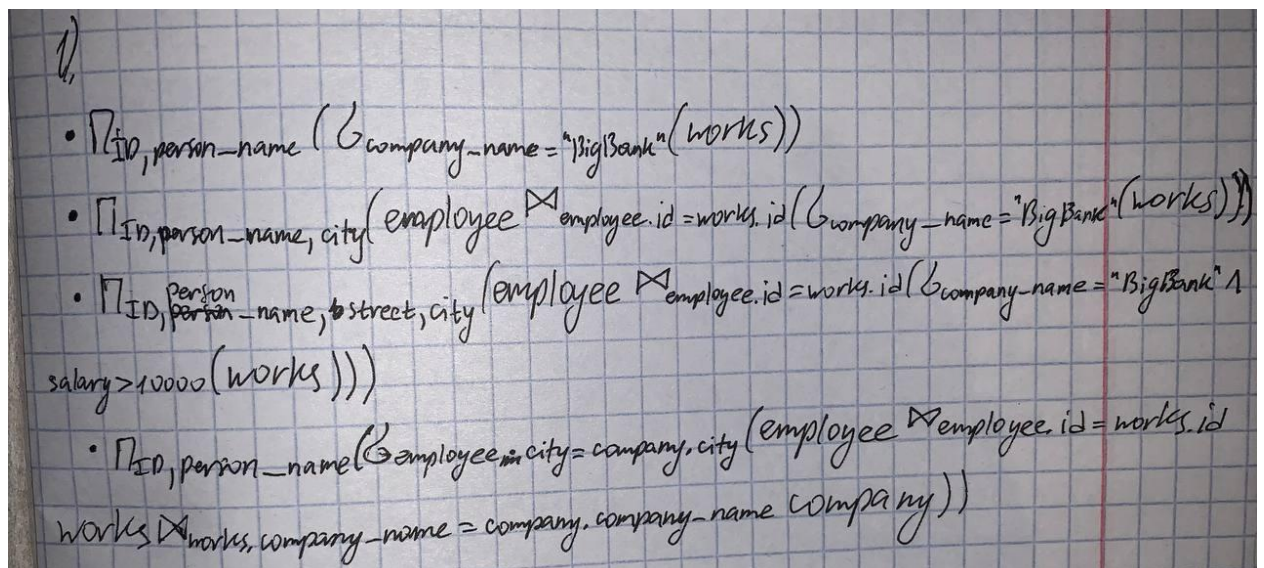 1)
• Π ID, person_name (σ company_name = "BigBank" (works))
• Π ID, person_name, city (employee ⋈ employee.id = works.id (σ company_name = "BigBank" (works)))
• Π ID, person_name, street, city (employee ⋈ employee.id = works.id (σ company_name = "BigBank" ∧
salary > 10000 (works)))
• Π ID, person_name (σ employee.city = company.city (employee ⋈ employee.id = works.id
works ⋈ works.company_name = company.company_name company))